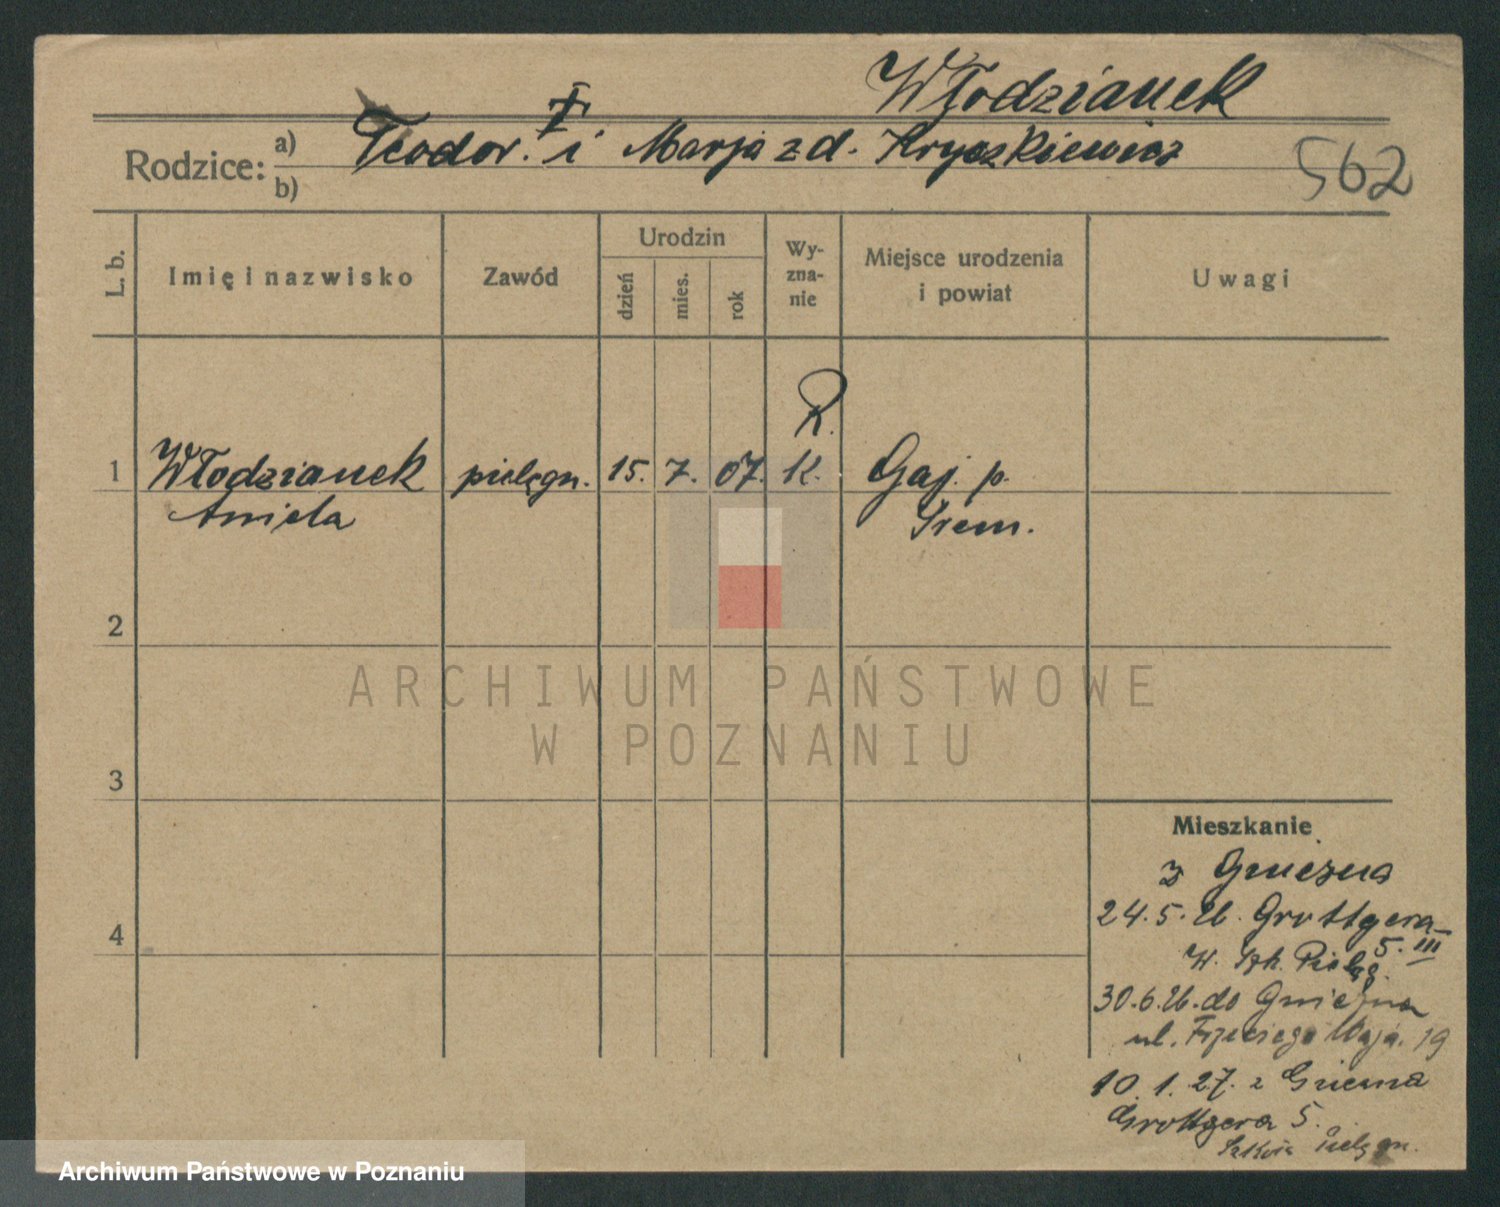 Włodzianek
Rodzice: a) Teodor. i Marja z d. Kryszkiewicz
b)
562
L. b.
Imię i nazwisko
Zawód
Urodzin
dzień
mies.
rok
Wy-
zna-
nie
Miejsce urodzenia
i powiat
Uwagi
R.
1 Włodzianek pielęgn. 15. 7. 07. K. Gaj. p.
Aniela Śrem.
2
3
4
ARCHIWUM PAŃSTWOWE
W POZNANIU
Mieszkanie
z Gniezna
24.5.26. Grottgera
5. III
w. Szk. Pielęg.
30.6.26. do Gniezna
ul. Trzeciego Maja. 19
10.1.27. z Gniezna
Grottgera 5.
Szkoła Pielęgn.
Archiwum Państwowe w Poznaniu